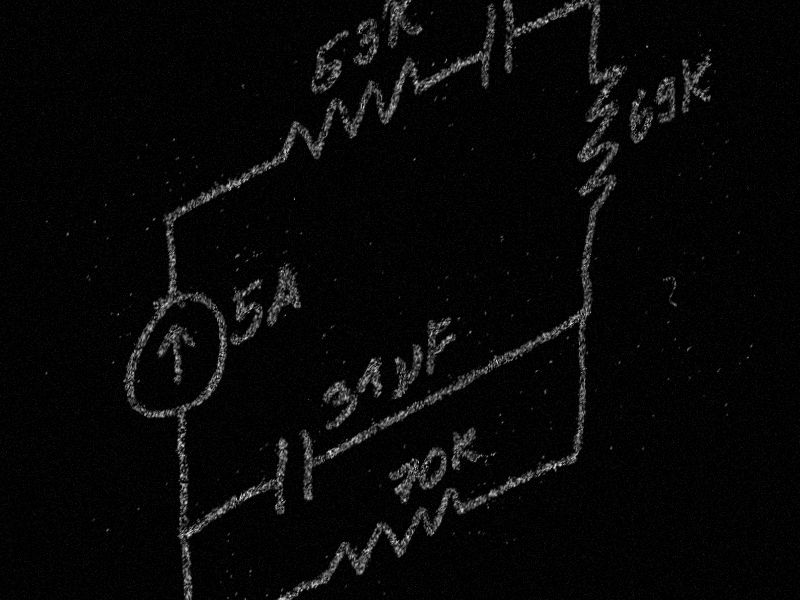 53K
69K
5A
31µF
70K